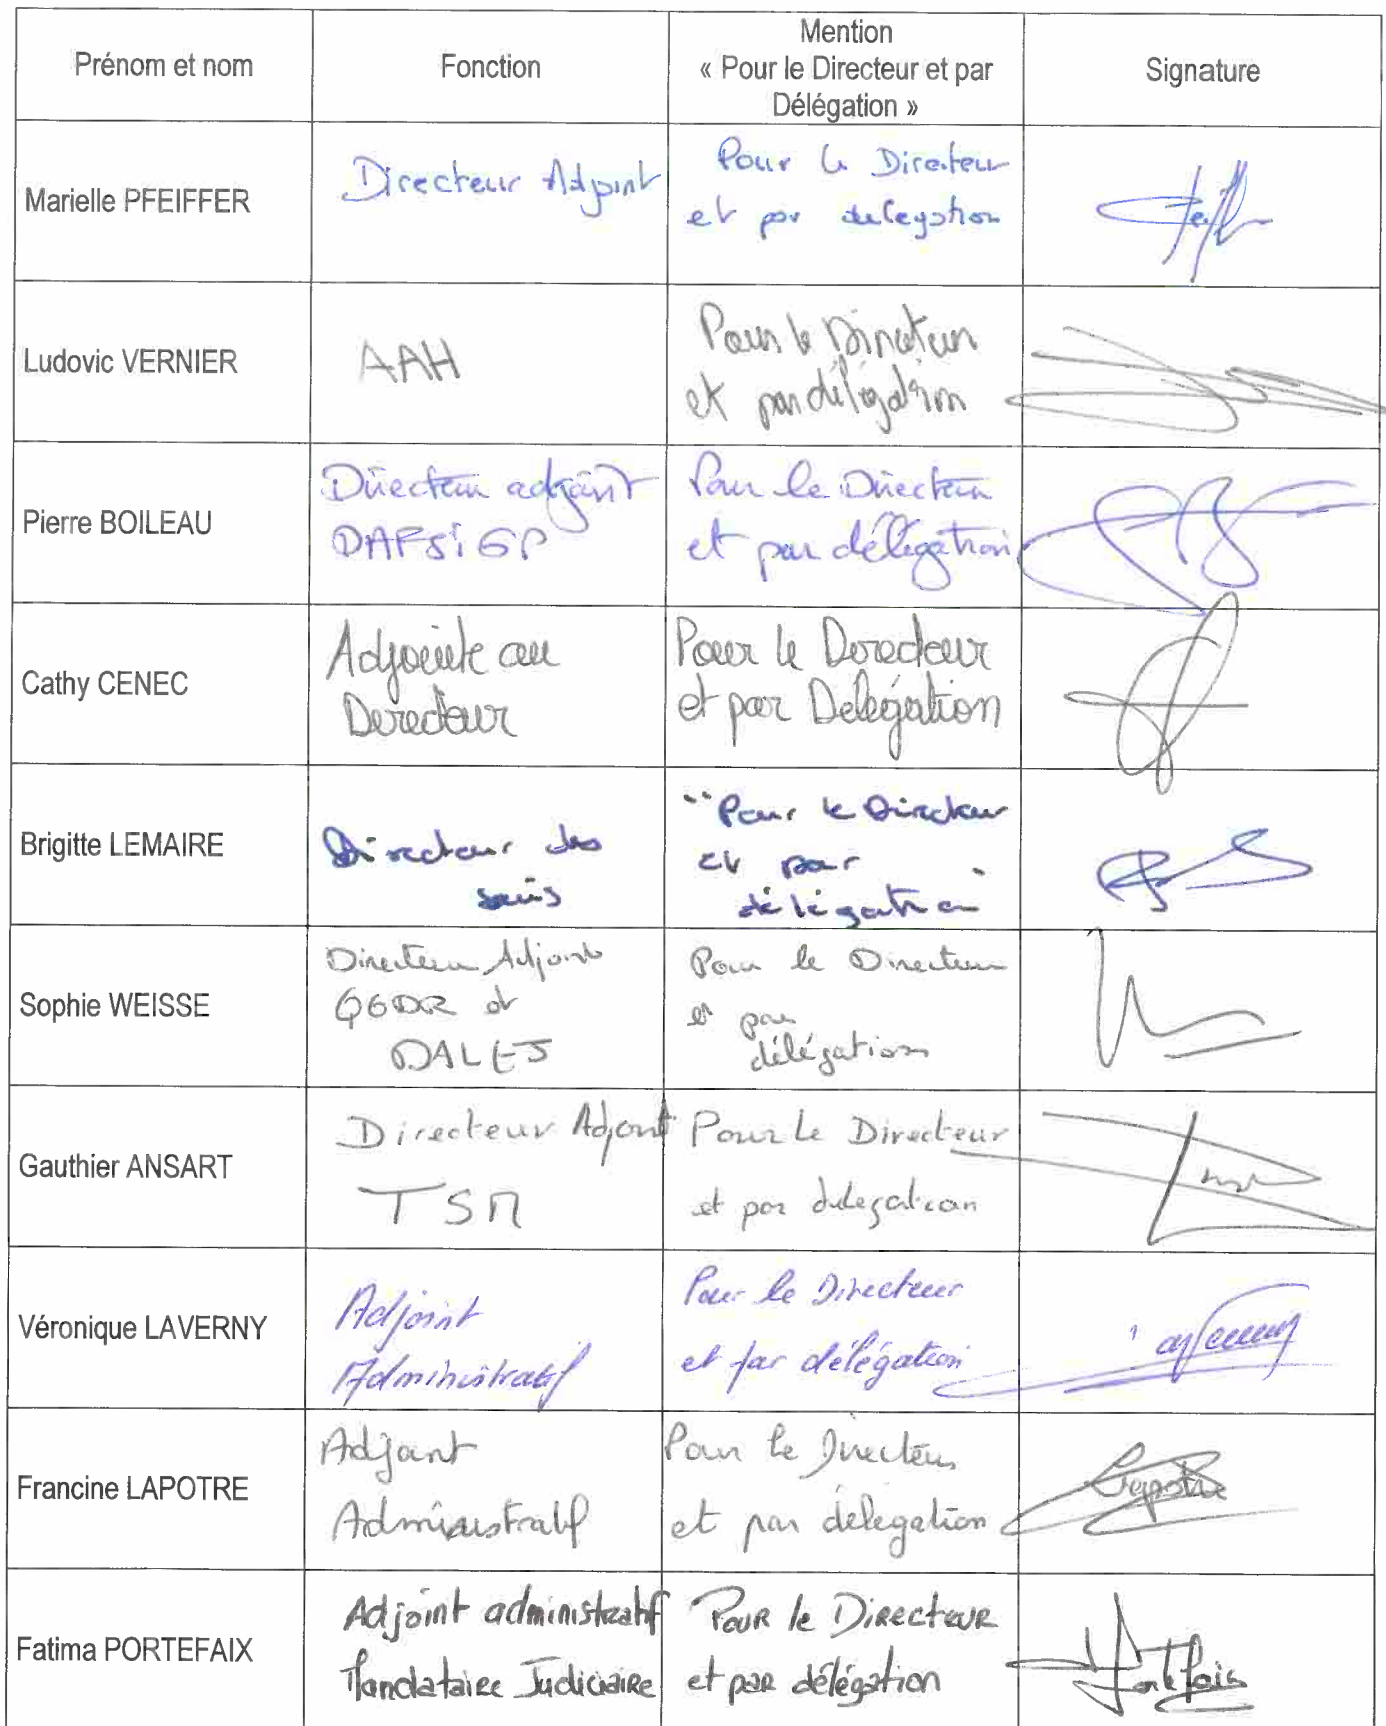 Prénom et nom
Fonction
Mention
« Pour le Directeur et par
Délégation »
Signature
Marielle PFEIFFER
Directeur Adjoint
Pour le Directeur
et par delegation
Ludovic VERNIER
AAH
Pour le Directeur
et par délégation
Pierre BOILEAU
Directeur adjoint
DAFSiGP
Pour le Directeur
et par délégation
Cathy CENEC
Adjointe au
Directeur
Pour le Directeur
et par Delégation
Brigitte LEMAIRE
Directeur des
soins
"Pour le Directeur
et par
délégation"
Sophie WEISSE
Directeur Adjoint
QGDR et
DALEJ
Pour le Directeur
et par
délégation
Gauthier ANSART
Directeur Adjoint
TSM
Pour Le Directeur
et par delegation
Véronique LAVERNY
Adjoint
Administratif
Pour le Directeur
et par délégation
Francine LAPOTRE
Adjoint
Administratif
Pour le Directeur
et par délegation
Lapotre
Fatima PORTEFAIX
Adjoint administratif
Mandataire Judiciaire
Pour le Directeur
et par délégation
Portefaix